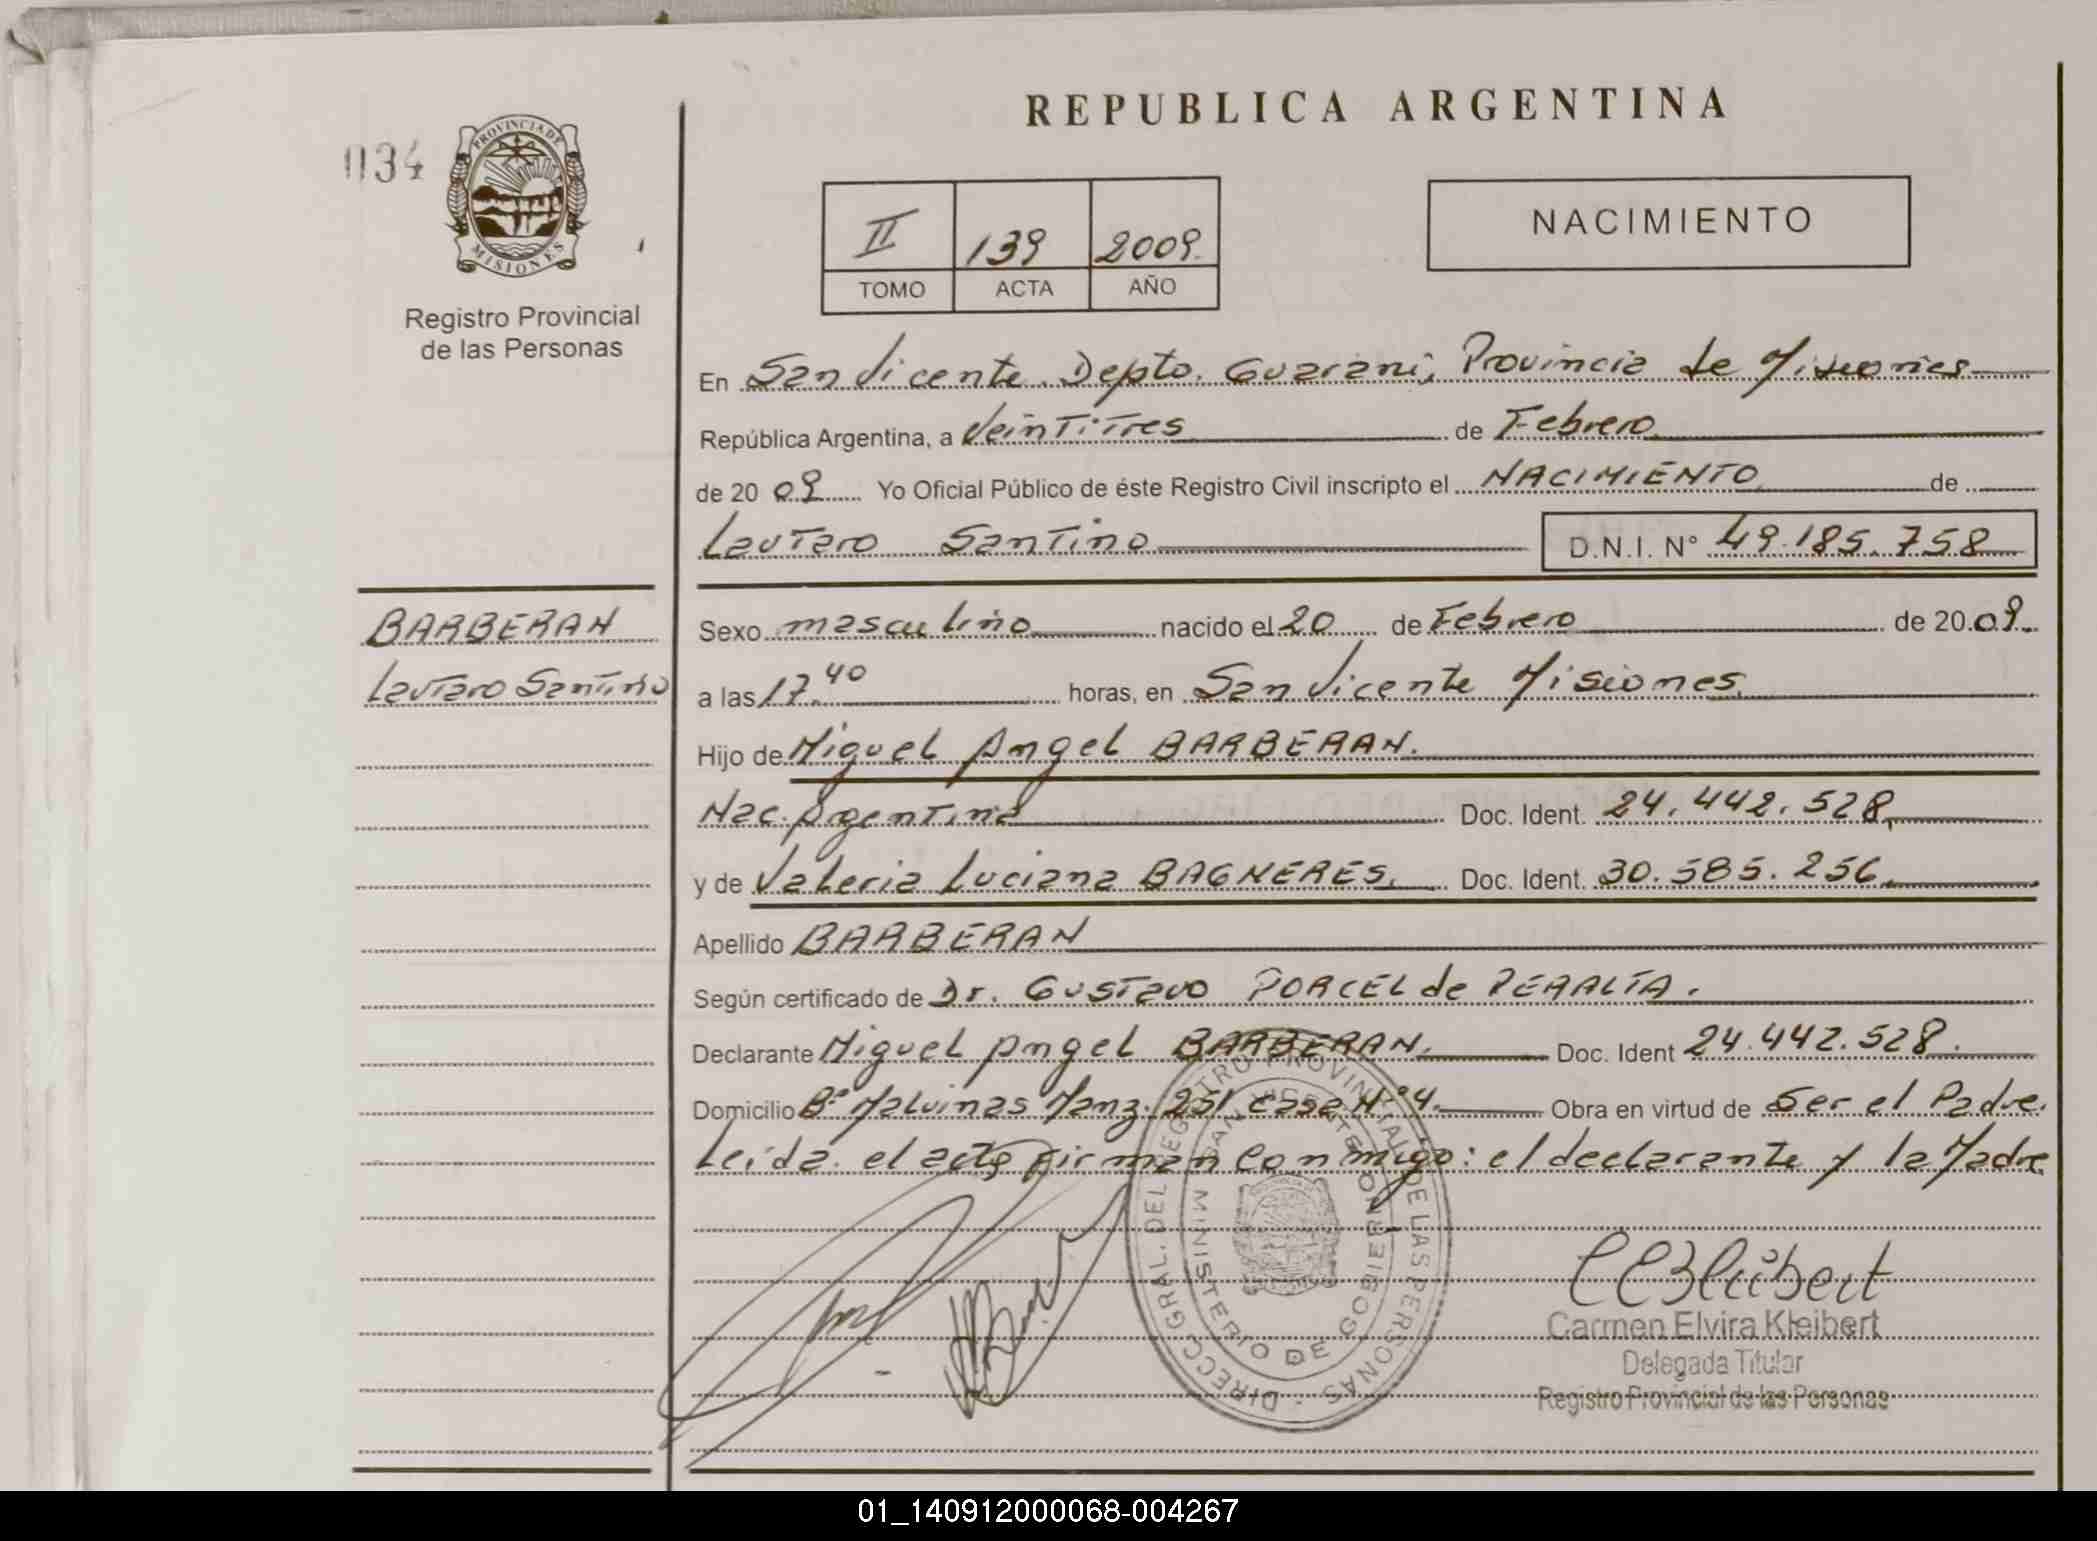 REPUBLICA ARGENTINA
034
PROVINCIA DE
MISIONES
Registro Provincial
de las Personas
II 139 2009
TOMO ACTA AÑO
NACIMIENTO
En San Vicente Depto. Guaraní, Provincia de Misiones
República Argentina, a Veintitres de Febrero
de 20 09 Yo Oficial Público de éste Registro Civil inscripto el NACIMIENTO de
Lautaro Santino D.N.I. N° 49.185.758
BARBERAN
Lautaro Santino
Sexo masculino nacido el 20 de Febrero de 20 09.
a las 17.40 horas, en San Vicente Misiones.
Hijo de Miguel Angel BARBERAN.
Nac. Argentina Doc. Ident. 24.442.528
y de Valeria Luciana BAGNERES. Doc. Ident. 30.585.256
Apellido BARBERAN
Según certificado de Dr. Gustavo PORCEL de PERALTA.
Declarante Miguel Angel BARBERAN. Doc. Ident 24.442.528.
Domicilio B° Malvinas Manz. 251 casa N° 4. Obra en virtud de Ser el Padre.
Leída el acta firman conmigo: el declarante y la Madre
DIRECC. GRAL. DEL REGISTRO PROVINCIAL DE LAS PERSONAS
MINISTERIO DE GOBIERNO
SAN VICENTE
Carmen Elvira Kleibert
Delegada Titular
Registro Provincial de las Personas
01_140912000068-004267